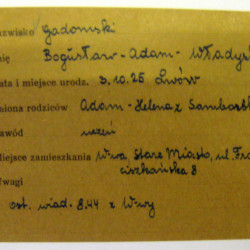 azwisko Gadomski
ię Bogusław-Adam-Władys
ata i miejsce urodz. 3.10.25 Lwów
miona rodziców Adam-Helena z Sambors
wód uczeń
iejsce zamieszkania W-wa, Stare Miasto, ul. Fra
ciszkańska 8
wagi
ost. wiad. 8.44 z W-wy